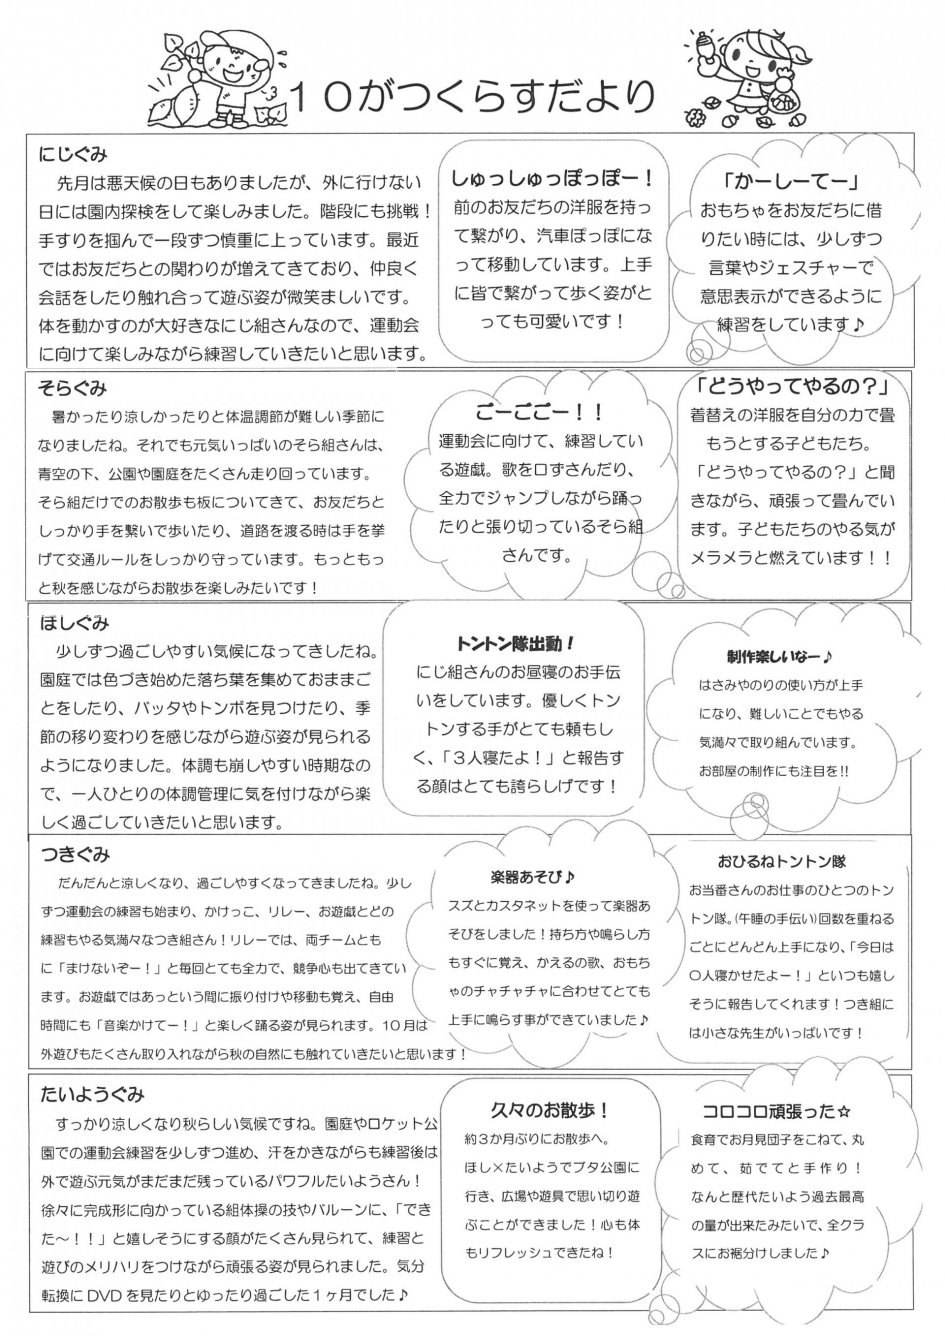 １０がつくらすだより
にじぐみ
先月は悪天候の日もありましたが、外に行けない
日には園内探検をして楽しみました。階段にも挑戦！
手すりを掴んで一段ずつ慎重に上っています。最近
ではお友だちとの関わりが増えてきており、仲良く
会話をしたり触れ合って遊ぶ姿が微笑ましいです。
体を動かすのが大好きなにじ組さんなので、運動会
に向けて楽しみながら練習していきたいと思います。
しゅっしゅっぽっぽー！
前のお友だちの洋服を持っ
て繋がり、汽車ぽっぽにな
って移動しています。上手
に皆で繋がって歩く姿がと
っても可愛いです！
「かーしーてー」
おもちゃをお友だちに借
りたい時には、少しずつ
言葉やジェスチャーで
意思表示ができるように
練習をしています♪
そらぐみ
暑かったり涼しかったりと体温調節が難しい季節に
なりましたね。それでも元気いっぱいのそら組さんは、
青空の下、公園や園庭をたくさん走り回っています。
そら組だけでのお散歩も板についてきて、お友だちと
しっかり手を繋いで歩いたり、道路を渡る時は手を挙
げて交通ルールをしっかり守っています。もっともっ
と秋を感じながらお散歩を楽しみたいです！
ごーごごー！！
運動会に向けて、練習してい
る遊戯。歌を口ずさんだり、
全力でジャンプしながら踊っ
たりと張り切っているそら組
さんです。
「どうやってやるの？」
着替えの洋服を自分の力で畳
もうとする子どもたち。
「どうやってやるの？」と聞
きながら、頑張って畳んでい
ます。子どもたちのやる気が
メラメラと燃えています！！
ほしぐみ
少しずつ過ごしやすい気候になってきしたね。
園庭では色づき始めた落ち葉を集めておままご
とをしたり、バッタやトンボを見つけたり、季
節の移り変わりを感じながら遊ぶ姿が見られる
ようになりました。体調も崩しやすい時期なの
で、一人ひとりの体調管理に気を付けながら楽
しく過ごしていきたいと思います。
トントン隊出動！
にじ組さんのお昼寝のお手伝
いをしています。優しくトン
トンする手がとても頼もし
く、「３人寝たよ！」と報告す
る顔はとても誇らしげです！
制作楽しいなー♪
はさみやのりの使い方が上手
になり、難しいことでもやる
気満々で取り組んでいます。
お部屋の制作にも注目を!!
つきぐみ
だんだんと涼しくなり、過ごしやすくなってきましたね。少し
ずつ運動会の練習も始まり、かけっこ、リレー、お遊戯とどの
練習もやる気満々なつき組さん！リレーでは、両チームとも
に「まけないぞー！」と毎回とても全力で、競争心も出てきてい
ます。お遊戯ではあっという間に振り付けや移動も覚え、自由
時間にも「音楽かけてー！」と楽しく踊る姿が見られます。１０月は
外遊びもたくさん取り入れながら秋の自然にも触れていきたいと思います！
楽器あそび♪
スズとカスタネットを使って楽器あ
そびをしました！持ち方や鳴らし方
もすぐに覚え、かえるの歌、おもち
ゃのチャチャチャに合わせてとても
上手に鳴らす事ができていました♪
おひるねトントン隊
お当番さんのお仕事のひとつのトン
トン隊。(午睡の手伝い)回数を重ねる
ごとにどんどん上手になり、「今日は
〇人寝かせたよー！」といつも嬉し
そうに報告してくれます！つき組に
は小さな先生がいっぱいです！
たいようぐみ
すっかり涼しくなり秋らしい気候ですね。園庭やロケット公
園での運動会練習を少しずつ進め、汗をかきながらも練習後は
外で遊ぶ元気がまだまだ残っているパワフルたいようさん！
徐々に完成形に向かっている組体操の技やバルーンに、「でき
た〜！！」と嬉しそうにする顔がたくさん見られて、練習と
遊びのメリハリをつけながら頑張る姿が見られました。気分
転換に DVD を見たりとゆったり過ごした１ヶ月でした♪
久々のお散歩！
約３か月ぶりにお散歩へ。
ほし×たいようでブタ公園に
行き、広場や遊具で思い切り遊
ぶことができました！心も体
もリフレッシュできたね！
コロコロ頑張った☆
食育でお月見団子をこねて、丸
めて、茹でてと手作り！
なんと歴代たいよう過去最高
の量が出来たみたいで、全クラ
スにお裾分けしました♪